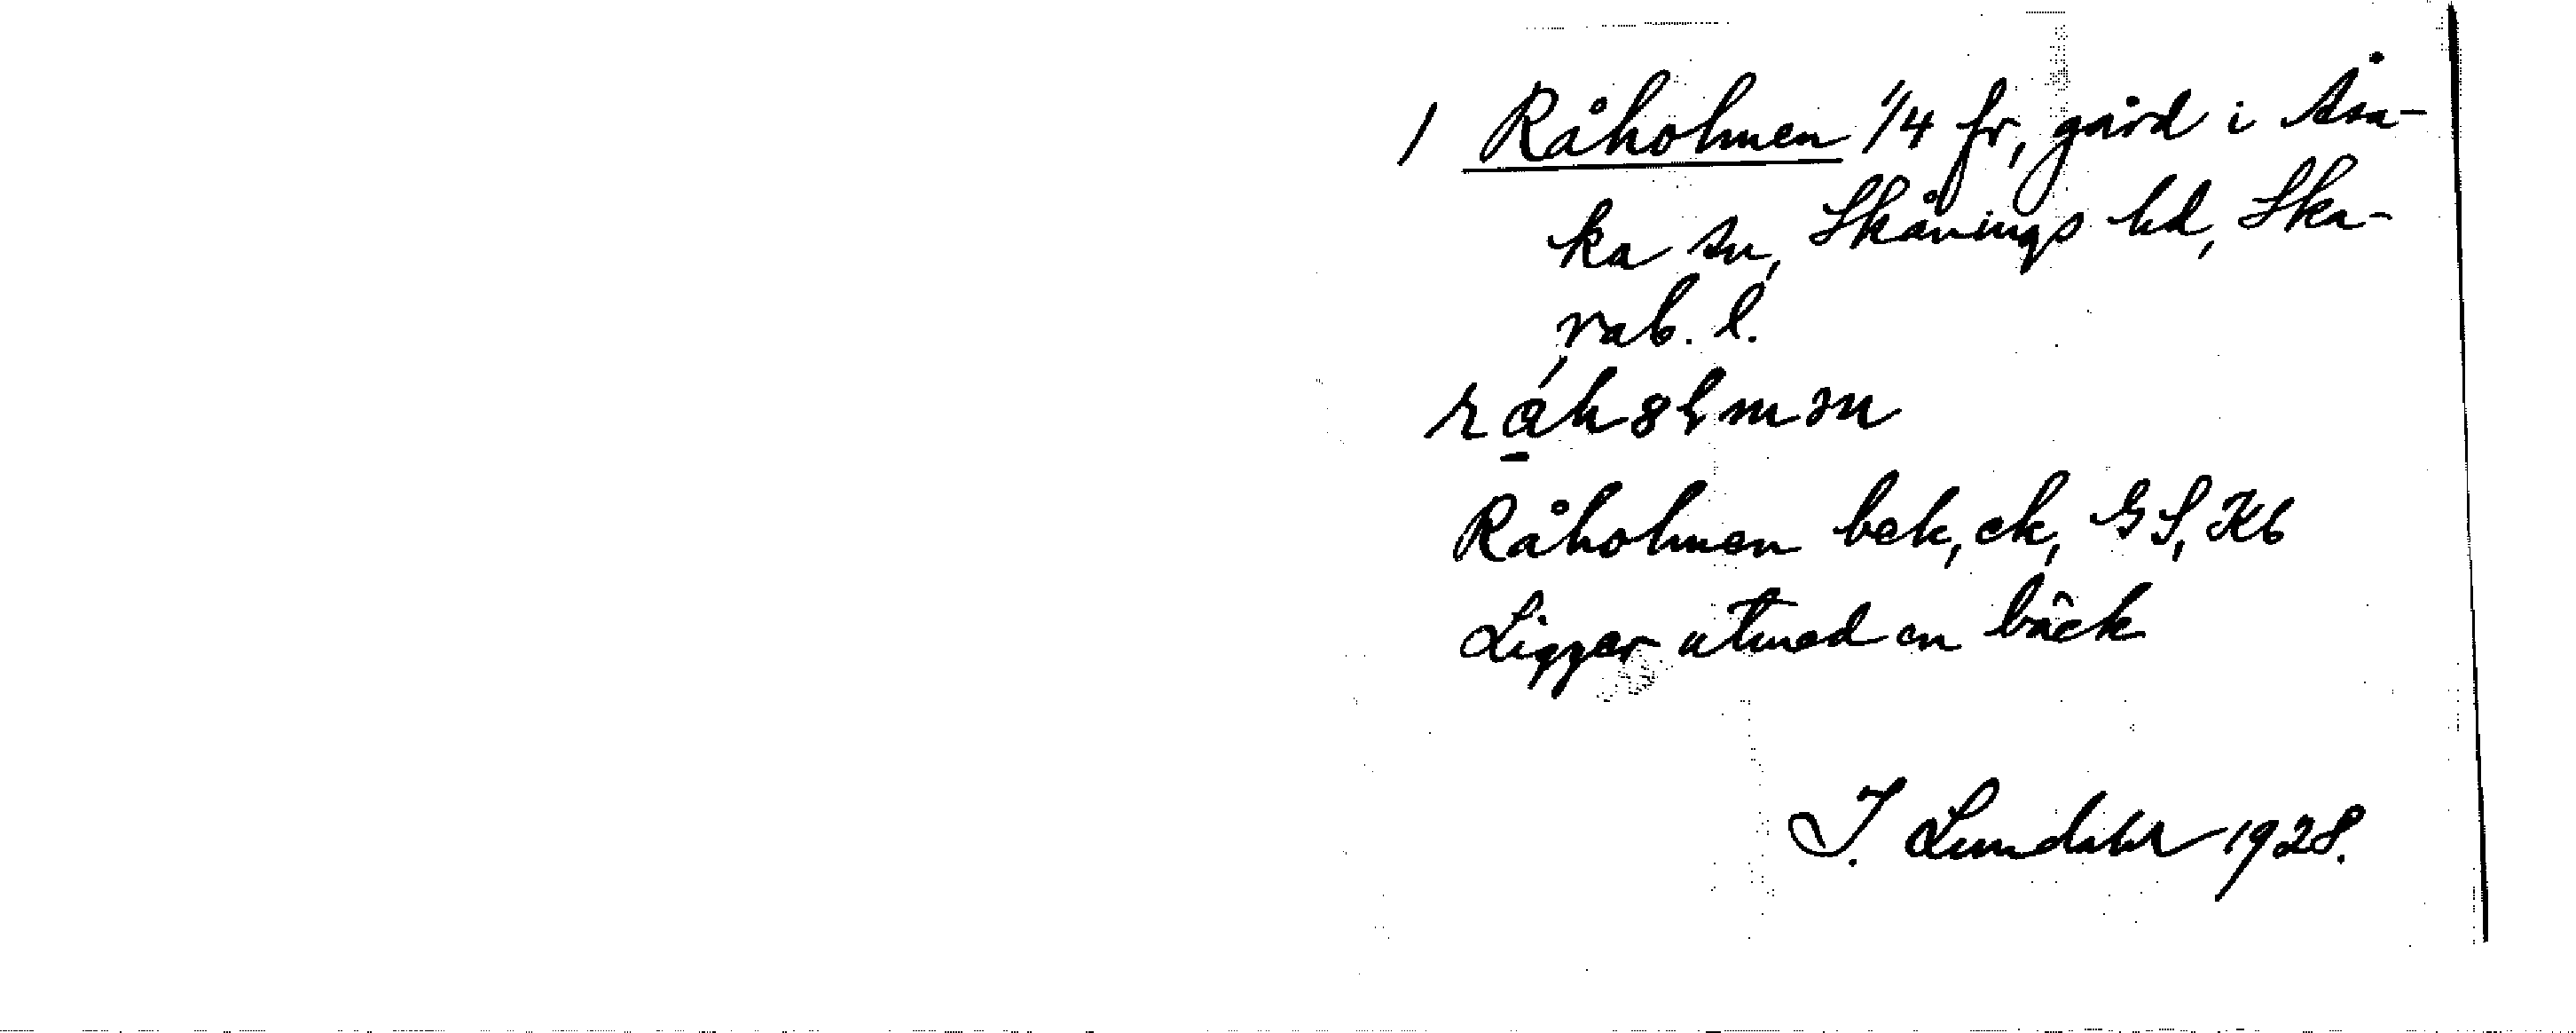 1 Råholmen 1/4 fr, gård i Åsa-
ka sn, Skånings hd, Ska-
rab. l.
Råholmen bek, ek, GS, Kb
Ligger utmed en bäck
I. Lundahl 1928.